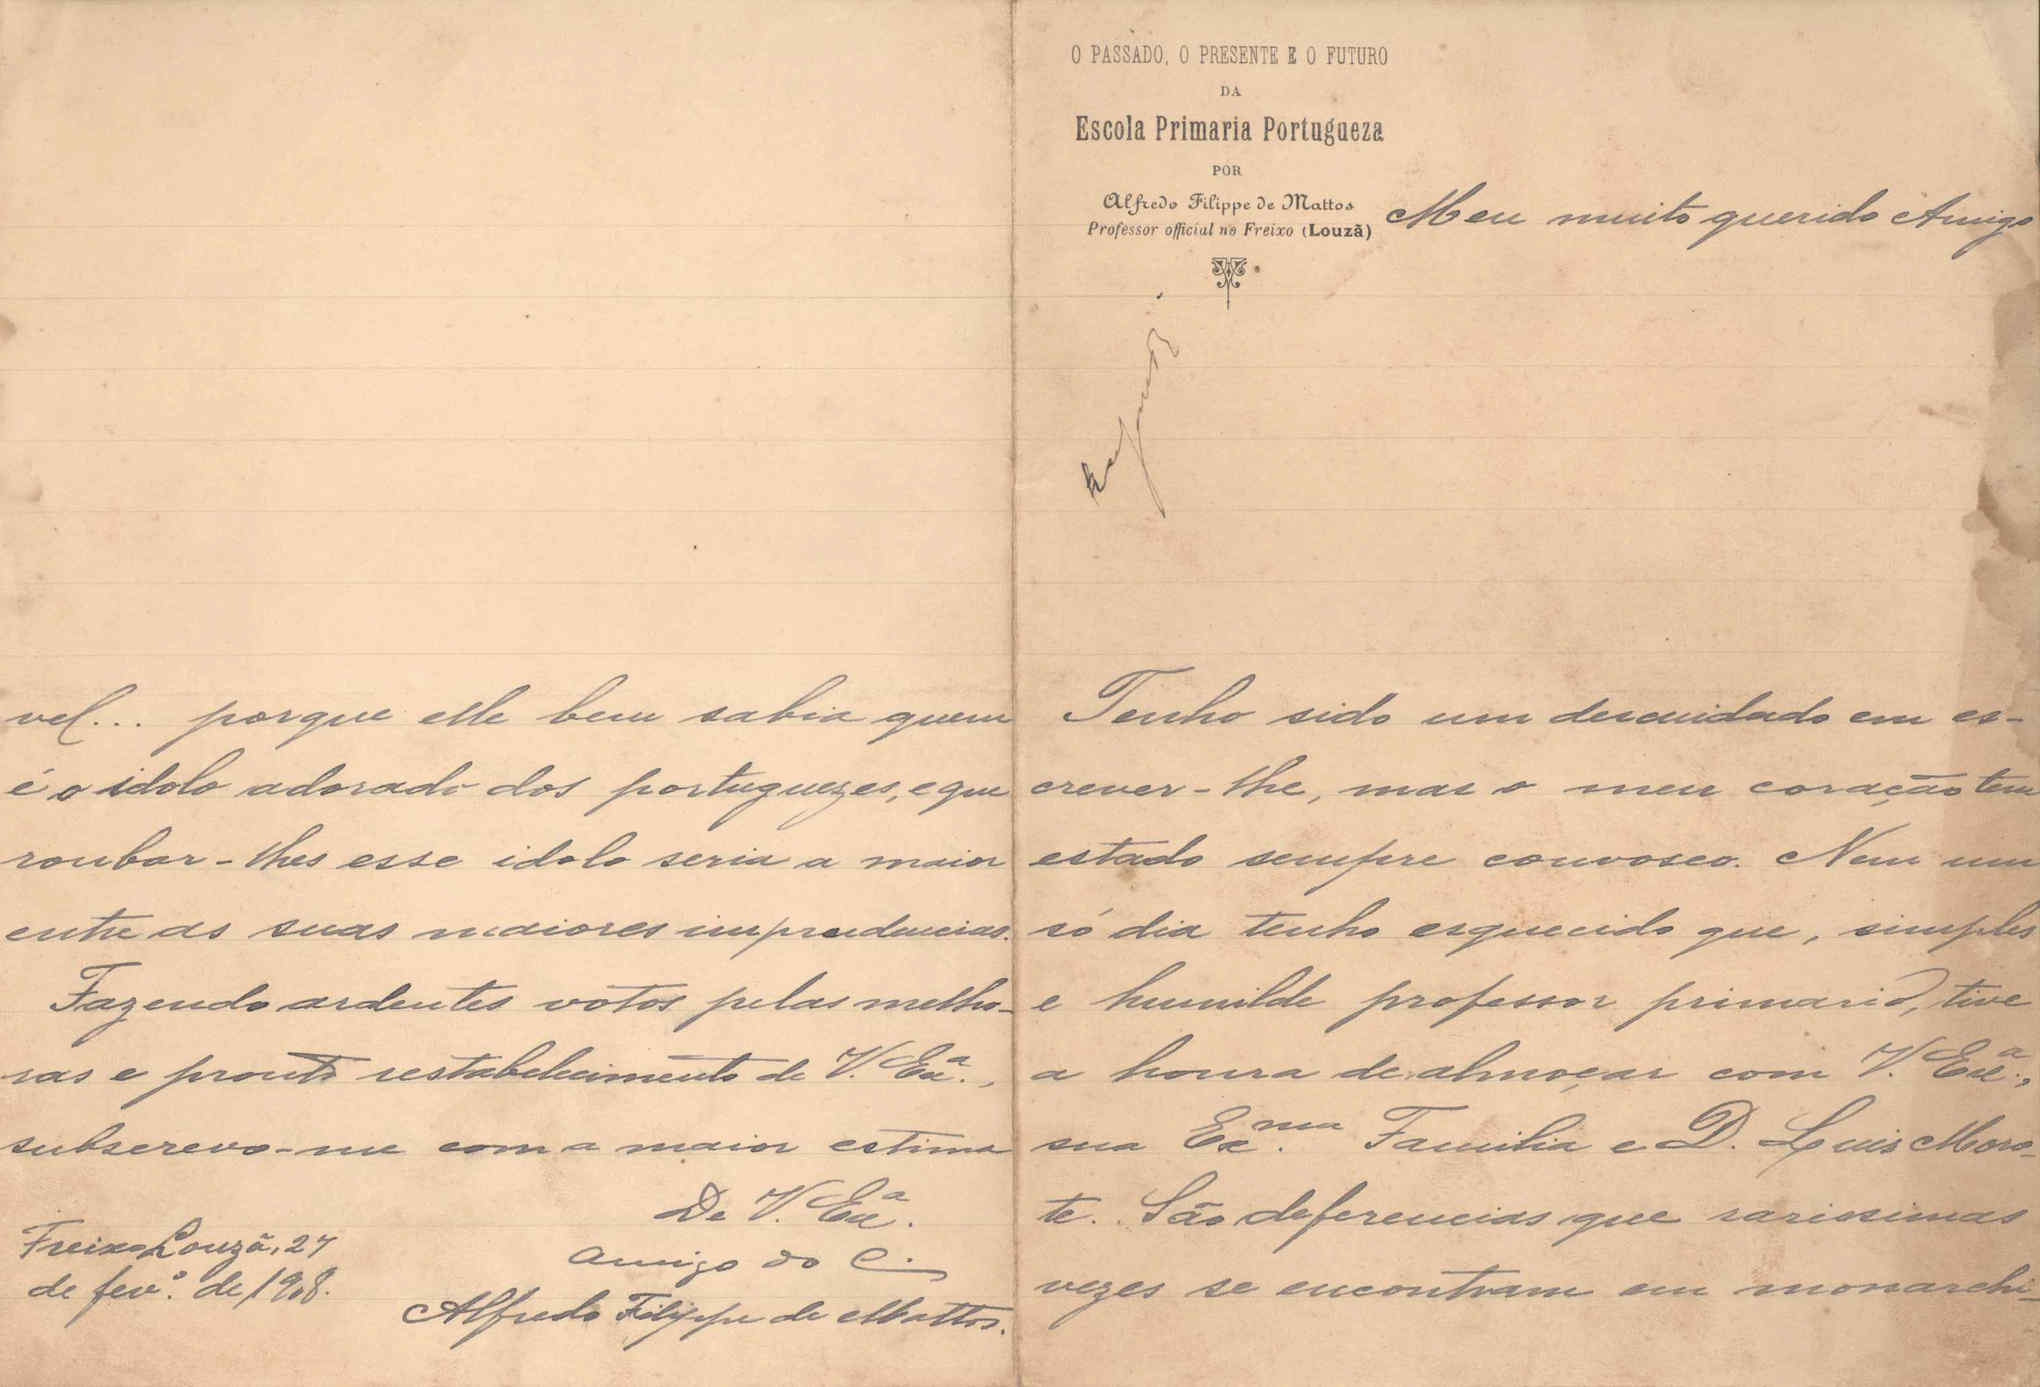 O PASSADO, O PRESENTE E O FUTURO
DA
Escola Primaria Portugueza
POR
Alfredo Filippe de Mattos
Professor official no Freixo (Louzã)
Meu muito querido Amigo
Tenho sido um descuidado em es-
crever-lhe, mas o meu coração tem
estado sempre comvosco. Nem um
só dia tenho esquecido que, simples
e humilde professor primario, tive
a honra de almoçar com V. Exª.,
sua Exma. Familia e D. Luis Moro-
te. São deferencias que rarissimas
vezes se encontram em monarchi-
vel... porque elle bem sabia quem
é o idolo adorado dos portuguezes, e que
roubar-lhes esse idolo seria a maior
entre as suas maiores imprudencias.
Fazendo ardentes votos pelas melho-
ras e prompto restabelecimento de V. Exª.,
subscrevo-me com a maior estima
De V. Exª.
Amigo do C.
Alfredo Filippe de Mattos.
Freixo Louzã, 27
de fevº. de 1908.